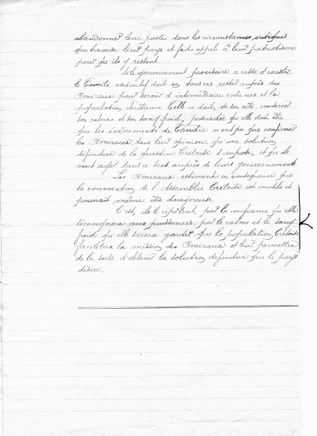 abandonner leur poste dans les circonstances critiques
que traverse leur pays et fait appel à leur patriotisme
pour qu'ils y restent.
Si le gouvernement provisoire a cessé d'exister,
le Comité exécutif doit en sources resté auprès des
Amiraux pour servir d'intermédiaire entre eux et la
population chrétienne. Celle-ci doit, de son côté, conserver
son calme et son sang froid, persuadée qu'elle doit être
que les événements de Candie n'ont fait que confirmer
les Amiraux dans leur opinion qu'une solution
définitive de la question Crétoise s'impose, et qu'ils
vont agir dans ce sens auprès de leurs gouvernements.
Les Amiraux estiment en conséquence que
la convocation de l'Assemblée Crétoise est inutile et
pourrait même être dangereuse.
C'est, ils le répètent, par la confiance qu'elle
témoignera aux puissances, par le calme et le sang
froid qu'elle saura garder que la population Crétoise
facilitera la mission des Amiraux et leur permettra
de la sorte d'obtenir la solution définitive que le pays
désire.